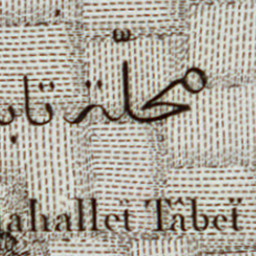 محلّة تاب
ahalleẗ Tâbeẗ